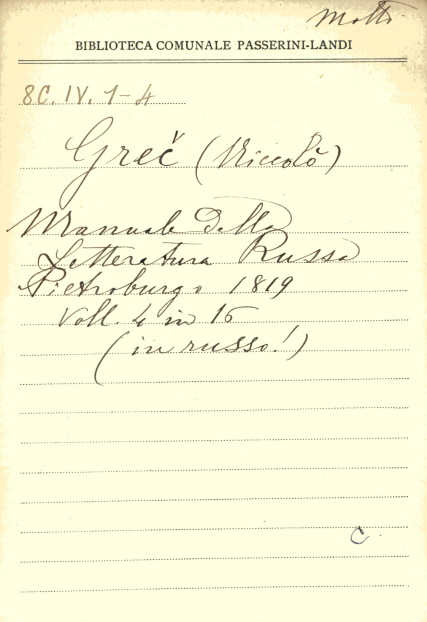 Motti
BIBLIOTECA COMUNALE PASSERINI-LANDI
8C. IV. 1-4
Greč (Niccolò)
Manuale della
Letteratura Russa
Pietroburgo 1819
Voll. 4 in 16
(in russo!)
C.